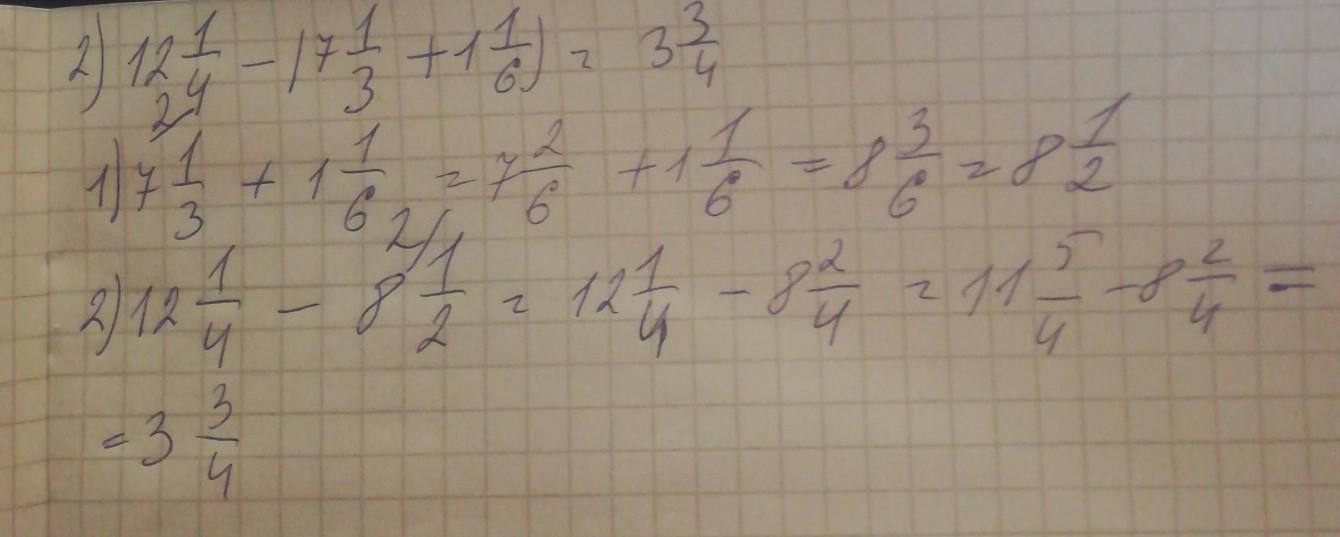 2) 12 1/4 - (7 1/3 + 1 1/6) = 3 3/4
1) 7 1/3 + 1 1/6 = 7 2/6 + 1 1/6 = 8 3/6 = 8 1/2
2) 12 1/4 - 8 1/2 = 12 1/4 - 8 2/4 = 11 5/4 - 8 2/4 =
= 3 3/4